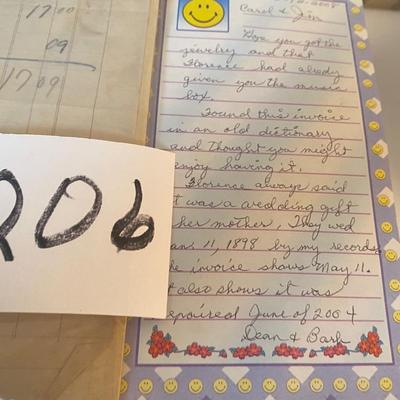 17.00
.09
17.09
206
2008
Carol & Jim
Hope you got the
jewelry and that
Florence had already
given you the music
box.
Found this invoice
in an old dictionary
and thought you might
enjoy having it.
Florence always said
it was a wedding gift
her mother. They wed
Jan. 11, 1898 by my records,
the invoice shows May 11.
It also shows it was
repaired June of 2004
Dean & Barb